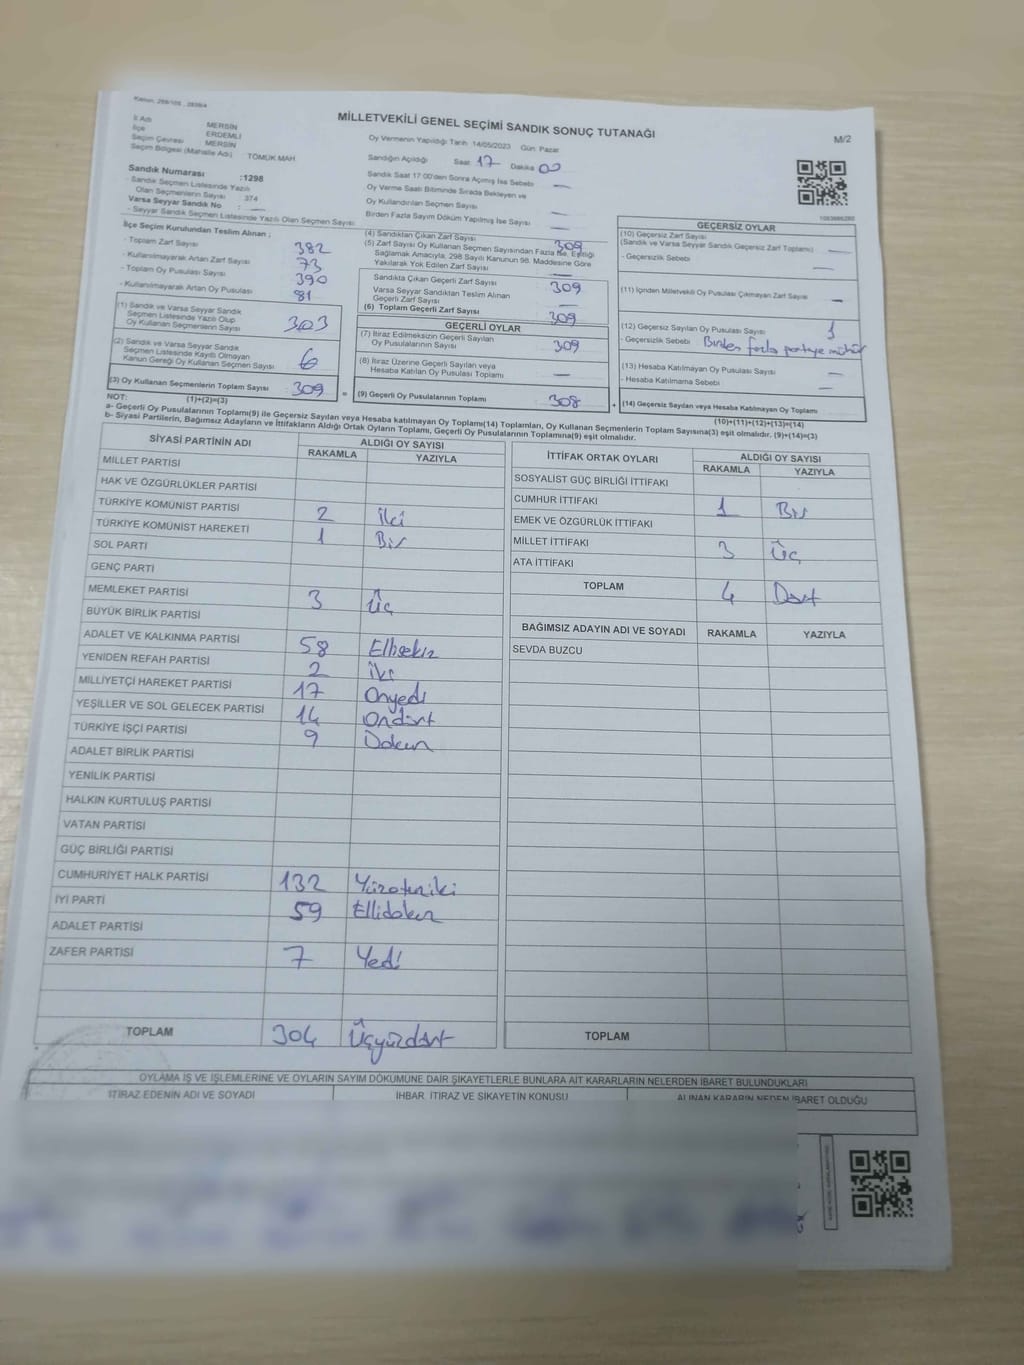 Kanun: 298/105 , 2839/4
MİLLETVEKİLİ GENEL SEÇİMİ SANDIK SONUÇ TUTANAĞI
M/2
İl Adı MERSİN
İlçe ERDEMLİ
Seçim Çevresi MERSİN
Seçim Bölgesi (Mahalle Adı) TÖMÜK MAH
Sandık Numarası :1298
Sandık Seçmen Listesinde Yazılı
Olan Seçmenlerin Sayısı 374
Varsa Seyyar Sandık No : —
- Seyyar Sandık Seçmen Listesinde Yazılı Olan Seçmen Sayısı
Oy Vermenin Yapıldığı Tarih 14/05/2023 Gün Pazar
Sandığın Açıldığı Saat 17 Dakika 00
Sandık Saat 17:00'den Sonra Açılmış İse Sebebi —
Oy Verme Saati Bitiminde Sırada Bekleyen ve
Oy Kullandırılan Seçmen Sayısı —
Birden Fazla Sayım Döküm Yapılmış İse Sayısı —
İlçe Seçim Kurulundan Teslim Alınan ;
- Toplam Zarf Sayısı 382
- Kullanılmayarak Artan Zarf Sayısı 73
- Toplam Oy Pusulası Sayısı 390
- Kullanılmayarak Artan Oy Pusulası 81
(1) Sandık ve Varsa Seyyar Sandık
Seçmen Listesinde Yazılı Olup
Oy Kullanan Seçmenlerin Sayısı 303
(2) Sandık ve Varsa Seyyar Sandık
Seçmen Listesinde Kayıtlı Olmayan
Kanun Gereği Oy Kullanan Seçmen Sayısı 6
(3) Oy Kullanan Seçmenlerin Toplam Sayısı 309
(1)+(2)=(3)
(4) Sandıktan Çıkan Zarf Sayısı 309
(5) Zarf Sayısı Oy Kullanan Seçmen Sayısından Fazla İse, Eşitliği
Sağlamak Amacıyla, 298 Sayılı Kanunun 98. Maddesine Göre
Yakılarak Yok Edilen Zarf Sayısı —
Sandıkta Çıkan Geçerli Zarf Sayısı 309
Varsa Seyyar Sandıktan Teslim Alınan
Geçerli Zarf Sayısı —
(6) Toplam Geçerli Zarf Sayısı 309
GEÇERLİ OYLAR
(7) İtiraz Edilmeksizin Geçerli Sayılan
Oy Pusulalarının Sayısı 309
(8) İtiraz Üzerine Geçerli Sayılan veya
Hesaba Katılan Oy Pusulası Toplamı —
= (9) Geçerli Oy Pusulalarının Toplamı 308
GEÇERSİZ OYLAR
(10) Geçersiz Zarf Sayısı
(Sandık ve Varsa Seyyar Sandık Geçersiz Zarf Toplamı) —
- Geçersizlik Sebebi —
(11) İçinden Milletvekili Oy Pusulası Çıkmayan Zarf Sayısı —
(12) Geçersiz Sayılan Oy Pusulası Sayısı 1
- Geçersizlik Sebebi Birden fazla partiye mühür
(13) Hesaba Katılmayan Oy Pusulası Sayısı —
- Hesaba Katılmama Sebebi —
+ (14) Geçersiz Sayılan veya Hesaba Katılmayan Oy Toplamı
(10)+(11)+(12)+(13)=(14)
NOT:
a- Geçerli Oy Pusulalarının Toplamı(9) ile Geçersiz Sayılan veya Hesaba katılmayan Oy Toplamı(14) Toplamları, Oy Kullanan Seçmenlerin Toplam Sayısına(3) eşit olmalıdır. (9)+(14)=(3)
b- Siyasi Partilerin, Bağımsız Adayların ve İttifakların Aldığı Ortak Oyların Toplamı, Geçerli Oy Pusulalarının Toplamına(9) eşit olmalıdır.
SİYASİ PARTİNİN ADI ALDIĞI OY SAYISI
RAKAMLA YAZIYLA
MİLLET PARTİSİ
HAK VE ÖZGÜRLÜKLER PARTİSİ
TÜRKİYE KOMÜNİST PARTİSİ 2 İki
TÜRKİYE KOMÜNİST HAREKETİ 1 Bir
SOL PARTİ
GENÇ PARTİ
MEMLEKET PARTİSİ 3 Üç
BÜYÜK BİRLİK PARTİSİ
ADALET VE KALKINMA PARTİSİ 58 Ellisekiz
YENİDEN REFAH PARTİSİ 2 İki
MİLLİYETÇİ HAREKET PARTİSİ 17 Onyedi
YEŞİLLER VE SOL GELECEK PARTİSİ 14 Ondört
TÜRKİYE İŞÇİ PARTİSİ 9 Dokuz
ADALET BİRLİK PARTİSİ
YENİLİK PARTİSİ
HALKIN KURTULUŞ PARTİSİ
VATAN PARTİSİ
GÜÇ BİRLİĞİ PARTİSİ
CUMHURİYET HALK PARTİSİ 132 Yüzotuziki
İYİ PARTİ 59 Ellidokuz
ADALET PARTİSİ
ZAFER PARTİSİ 7 Yedi
TOPLAM 304 Üçyüzdört
İTTİFAK ORTAK OYLARI ALDIĞI OY SAYISI
RAKAMLA YAZIYLA
SOSYALİST GÜÇ BİRLİĞİ İTTİFAKI
CUMHUR İTTİFAKI 1 Bir
EMEK VE ÖZGÜRLÜK İTTİFAKI
MİLLET İTTİFAKI 3 Üç
ATA İTTİFAKI
TOPLAM 4 Dört
BAĞIMSIZ ADAYIN ADI VE SOYADI RAKAMLA YAZIYLA
SEVDA BUZCU
TOPLAM
OYLAMA İŞ VE İŞLEMLERİNE VE OYLARIN SAYIM DÖKÜMÜNE DAİR ŞİKAYETLERLE BUNLARA AİT KARARLARIN NELERDEN İBARET BULUNDUKLARI
İTİRAZ EDENİN ADI VE SOYADI İHBAR İTİRAZ VE ŞİKAYETİN KONUSU ALINAN KARARIN NEDEN İBARET OLDUĞU